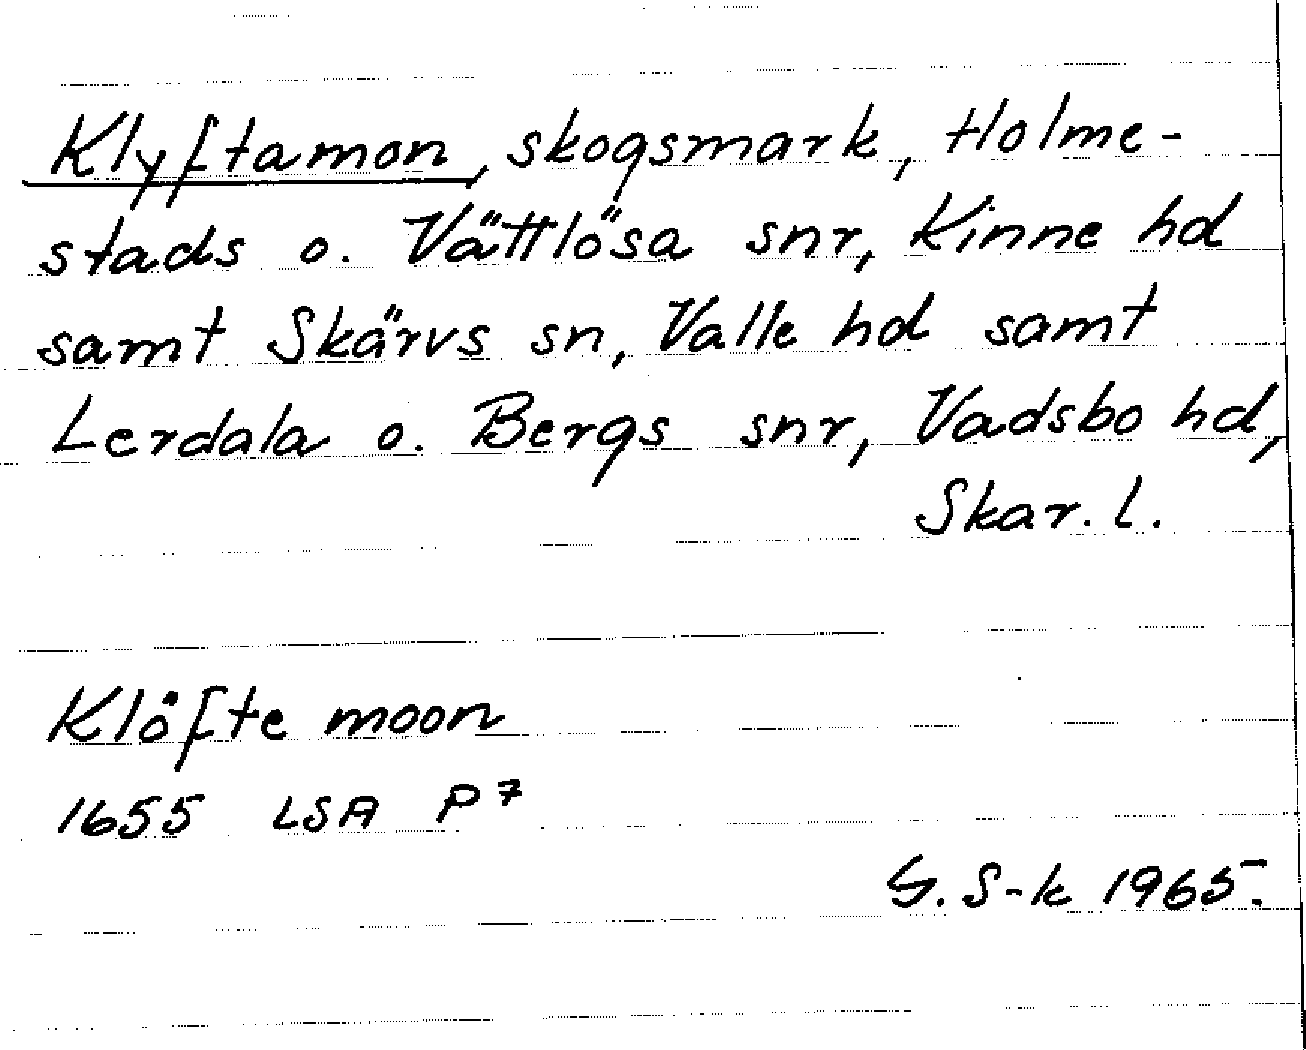 Klyftamon, skogsmark, Holme-
stads o. Vättlösa snr, Kinne hd
samt Skärvs sn, Valle hd samt
Lerdala o. Bergs snr, Vadsbo hd,
Skar. l.
Klöfte moon
1655 LSA P7
G. S-k 1965.